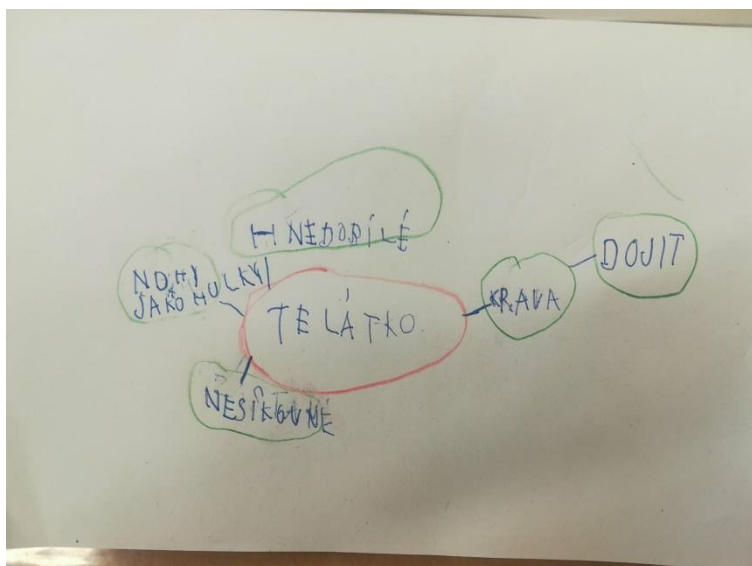 HNĚDOBÍLÉ
NOHY
JAKO HŮLKY
TELÁTKO
KRÁVA
DOJIT
NEŠIKOVNÉ